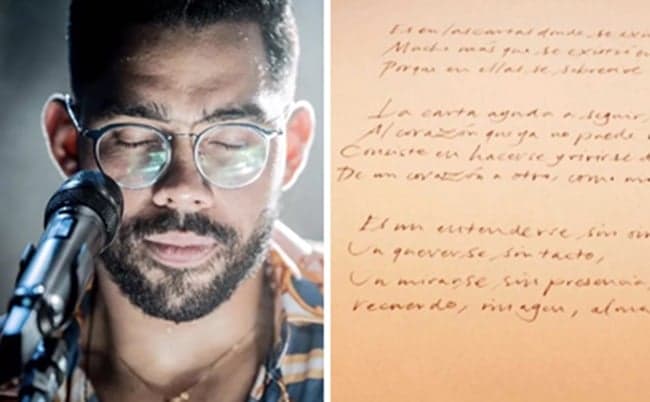 Es en las cartas donde se exis
Mucho más que se existió en
Porque en ellas se sobrevive
La carta ayuda a seguir,
Al corazón que ya no puede
Consiste en hacerse y rirse d
De un corazón a otro, como ma
Es un entenderse sin
Un quererse sin tacto,
Un mirarse sin presencia,
recuerdo, imagen, alma